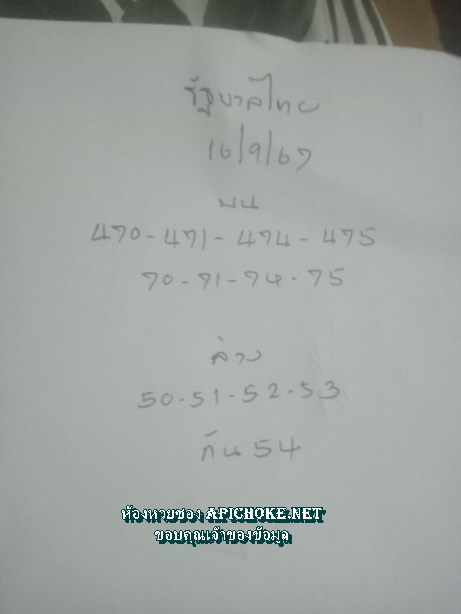 รัฐบาลไทย
16/9/67
บน
470-471-474-475
70-71-74-75
ล่าง
50-51-52-53
กัน 54
ห้องหวยซอง APICHOKE.NET
ขอบคุณเจ้าของข้อมูล